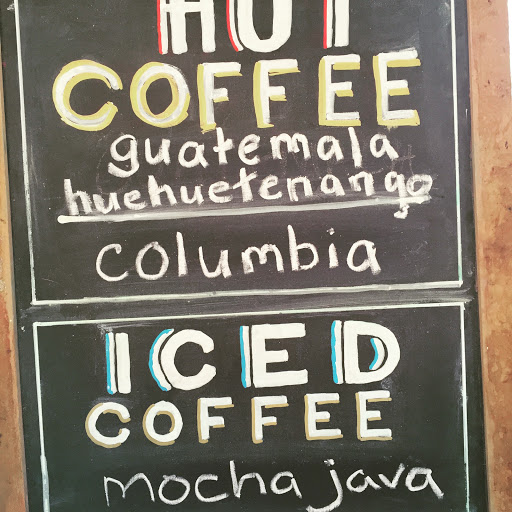 HOT
COFFEE
guatemala
huehuetenango
columbia
ICED
COFFEE
mocha java